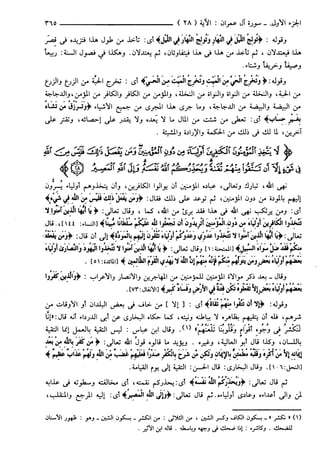 الجزء الأول ـ سورة آل عمران : الآية ( ٢٨ ) ٣٦٥
وقوله : ﴿تولج الليل في النهار وتولج النهار في الليل﴾ أي : تأخذ من طول هذا فتزيده في قصر
هذا فيعتدلان ، ثم تأخذ من هذا في هذا فيتفاوتان ، ثم يعتدلان . وهكذا في فصول السنة : ربيعاً
وصيفاً وخريفاً وشتاء .
وقوله : ﴿وتخرج الحي من الميت وتخرج الميت من الحي﴾ أي : تخرج الحبّة من الزرع والزرع
من الحبة ، والنخلة من النواة والنواة من النخلة ، والمؤمن من الكافر والكافر من المؤمن ، والدجاجة
من البيضة والبيضة من الدجاجة ، وما جرى هذا المجرى من جميع الأشياء ﴿وترزق من تشاء
بغير حساب﴾ أي : تعطي من شئت من المال ما لا يعده ولا يقدر على إحصائه ، وتقتر على
آخرين ، لما لك في ذلك من الحكمة والإرادة والمشيئة .
﴿لا يتخذ المؤمنون الكافرين أولياء من دون المؤمنين ومن يفعل ذلك فليس من الله
في شيء إلا أن تتقوا منهم تقاة ويحذركم الله نفسه وإلى الله المصير﴾
نهى الله ، تبارك وتعالى ، عباده المؤمنين أن يوالوا الكافرين ، وأن يتخذوهم أولياء يسرّون
إليهم بالمودة من دون المؤمنين ، ثم توعد على ذلك فقال : ﴿ومن يفعل ذلك فليس من الله في شيء﴾
أي : ومن يرتكب نهي الله في هذا فقد برئ من الله ، كما ، وقال تعالى : ﴿يا أيها الذين آمنوا لا
تتخذوا الكافرين أولياء من دون المؤمنين أتريدون أن تجعلوا لله عليكم سلطانا مبينا﴾ [النساء: ١٤٤]. قال
تعالى : ﴿يا أيها الذين آمنوا لا تتخذوا عدوي وعدوكم أولياء تلقون إليهم بالمودة﴾ إلى أن قال : ﴿ومن يفعله
منكم فقد ضل سواء السبيل﴾ [الممتحنة: ١] وقال تعالى : ﴿يا أيها الذين آمنوا لا تتخذوا اليهود والنصارى أولياء
بعضهم أولياء بعض ومن يتولهم منكم فإنه منهم إن الله لا يهدي القوم الظالمين﴾ [المائدة: ٥١] .
وقال ـ بعد ذكر موالاة المؤمنين للمؤمنين من المهاجرين والأنصار والأعراب : ﴿والذين كفروا
بعضهم أولياء بعض إلا تفعلوه تكن فتنة في الأرض وفساد كبير﴾ [الأنفال: ٧٣].
وقوله : ﴿إلا أن تتقوا منهم تقاة﴾ أي : [ إلا ] من خاف في بعض البلدان أو الأوقات من
شرهم ، فله أن يتقيهم بظاهره لا بباطنه ونيته ، كما حكاه البخاري عن أبي الدرداء أنه قال : «إنا
لنكشر في وجوه أقوام وقلوبنا تلعنهم» (١). وقال ابن عباس : ليس التقية بالعمل إنما التقية
باللسان ، وكذا قال أبو العالية ، وغيره . ويؤيد ما قالوه قول الله تعالى : ﴿من كفر بالله من بعد
إيمانه إلا من أكره وقلبه مطمئن بالإيمان ولكن من شرح بالكفر صدرا فعليهم غضب من الله ولهم عذاب عظيم﴾
[النحل: ١٠٦]. وقال البخاري : قال الحسن : التقية إلى يوم القيامة .
ثم قال تعالى : ﴿ويحذركم الله نفسه﴾ أي : يحذركم نقمته ، أي مخالفته وسطوته في عذابه
لمن والى أعداءه وعادى أولياءه . ثم قال تعالى : ﴿وإلى الله المصير﴾ أي : إليه المرجع والمنقلب ،
(١) « نكشر » ـ بسكون الكاف وكسر الشين ، من الثلاثي : من الكشر ـ بسكون الشين ـ وهو : ظهور الأسنان
للضحك . وكاشره : إذا ضحك في وجهه وباسطه . قاله ابن الأثير .